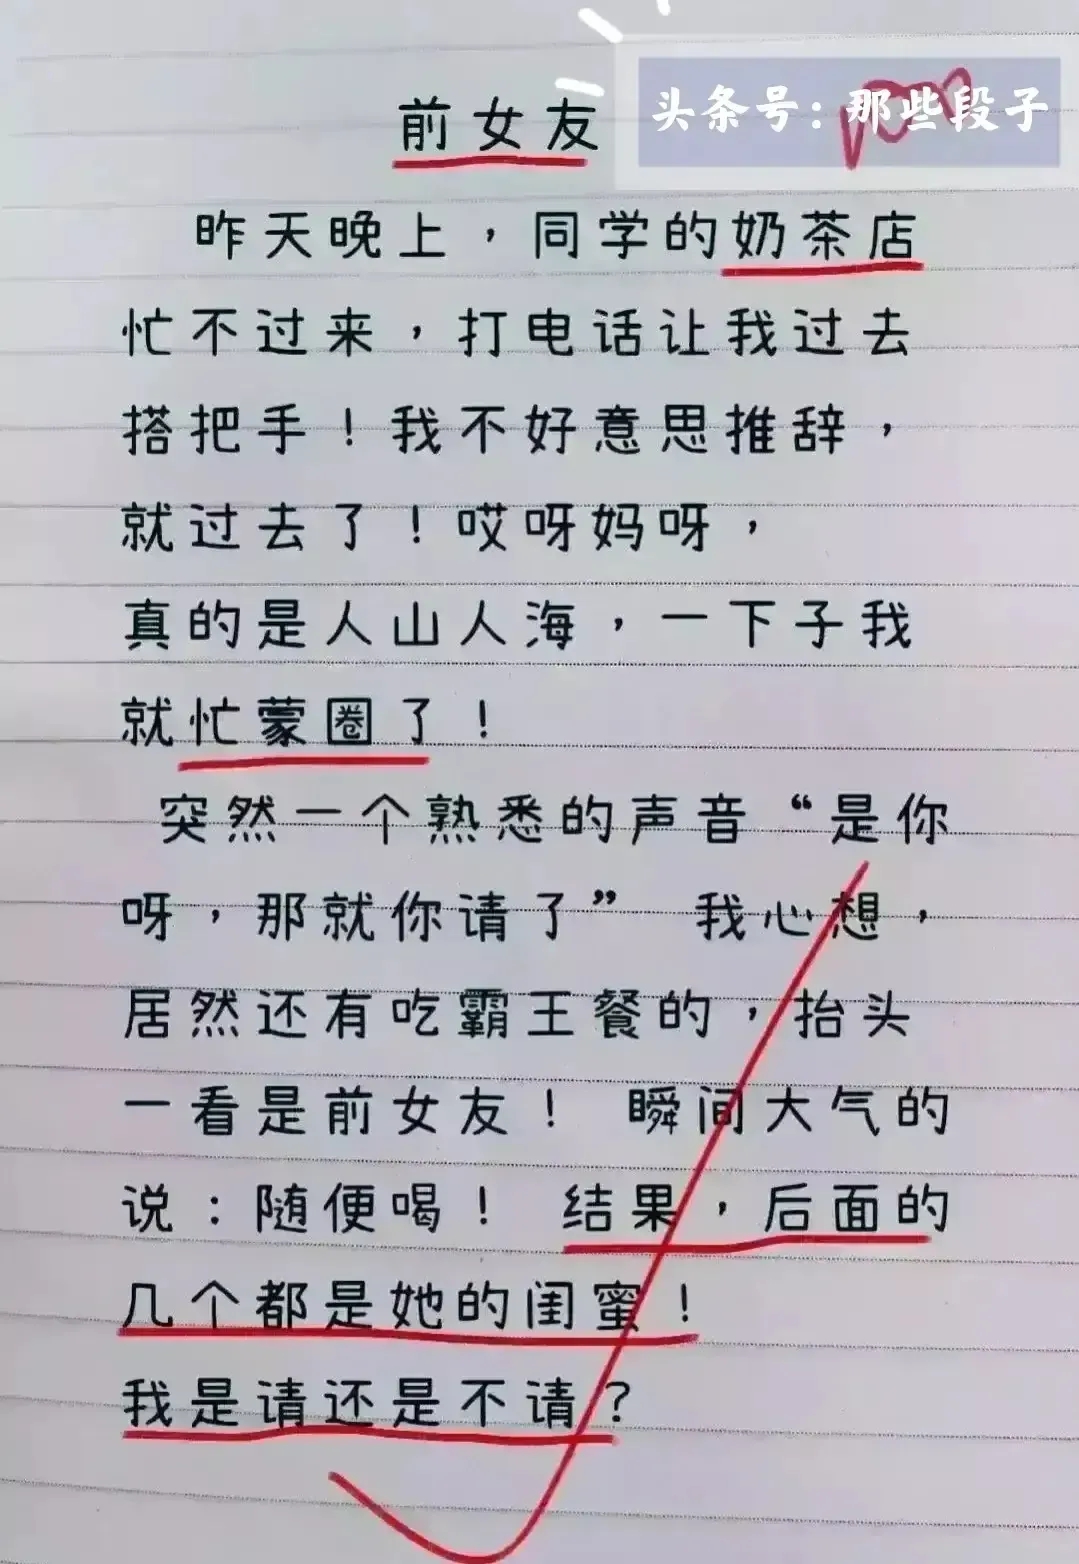 头条号：那些段子
前女友
昨天晚上，同学的奶茶店
忙不过来，打电话让我过去
搭把手！我不好意思推辞，
就过去了！哎呀妈呀，
真的是人山人海，一下子我
就忙蒙圈了！
突然一个熟悉的声音“是你
呀，那就你请了” 我心想，
居然还有吃霸王餐的，抬头
一看是前女友！ 瞬间大气的
说：随便喝！ 结果，后面的
几个都是她的闺蜜！
我是请还是不请？